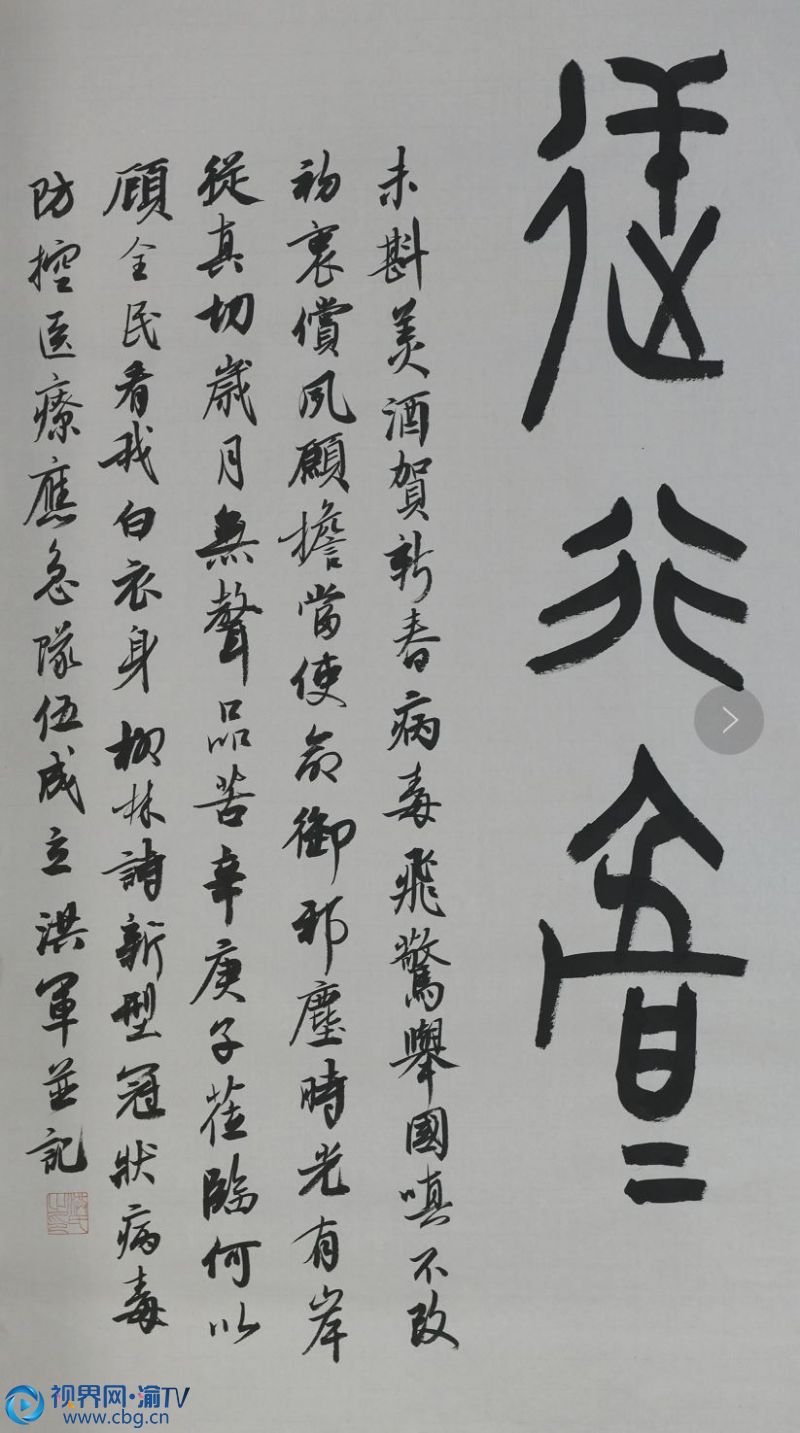 逆行
未斟美酒賀新春病毒飛驚舉國嗔不改
初衷償夙願擔當使命御邪塵時光有岸
從真切歲月無聲品苦辛庚子莅臨何以
顧全民看我白衣身柳林詩新型冠狀病毒
防控医療應急隊伍成立洪軍並記
视界网·渝TV
www.cbg.cn